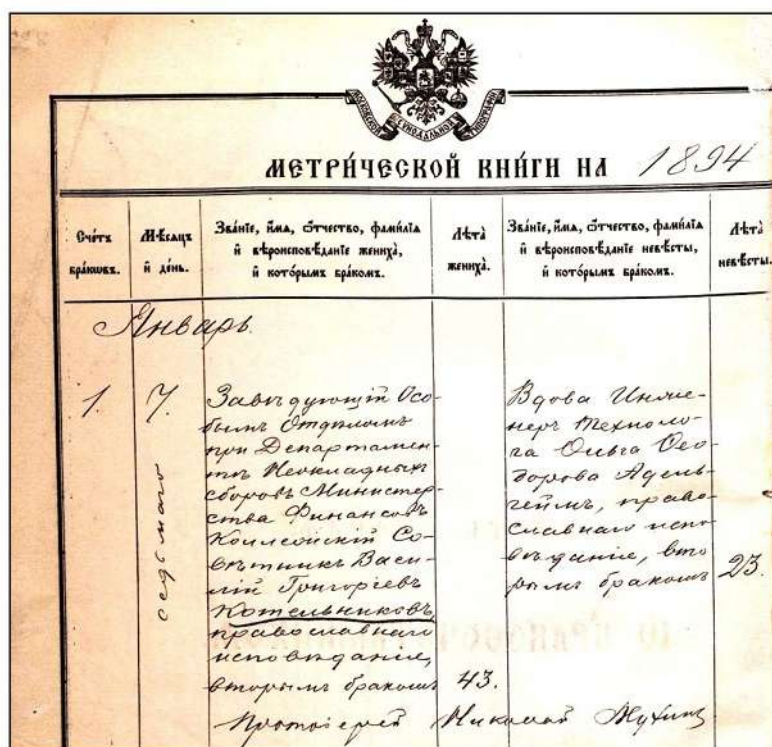 МОСКОВСКОЙ СѴНОДАЛЬНОЙ ТИПОГРАФІИ
МЕТРИ́ЧЕСКОЙ КНИ́ГИ НА 1894
Сче́тъ бра́кѡвъ.
Мѣ́сяцъ и҆ де́нь.
Зва́нїе, и҆́мѧ, ѻ҆́тчество, фамилїѧ
и҆ вѣроисповѣ́данїе женихà,
и҆ кото́рымъ бра́комъ.
Лѣтà женихà.
Зва́нїе, и҆́мѧ, ѻ҆́тчество, фамилїѧ
и҆ вѣроисповѣ́данїе невѣ́сты,
и҆ кото́рымъ бра́комъ.
Лѣтà невѣ́сты.
Январь.
1.
7.
седьмаго
Завѣдующій Осо-
бымъ Отдѣломъ
при Департамен-
тѣ Неокладныхъ
сборовъ Министер-
ства Финансовъ
Коллежскій Со-
вѣтникъ Васи-
лій Григорьевъ
Котельниковъ,
православнаго
исповѣданіе,
вторымъ бракомъ
43.
Вдова Инже-
неръ Техноло-
га Ольга Ѳео-
дорова Адель-
геймъ, право-
славнаго испо-
вѣданіе, вто
рымъ бракомъ
23.
Протоіерей Николай Мухинъ